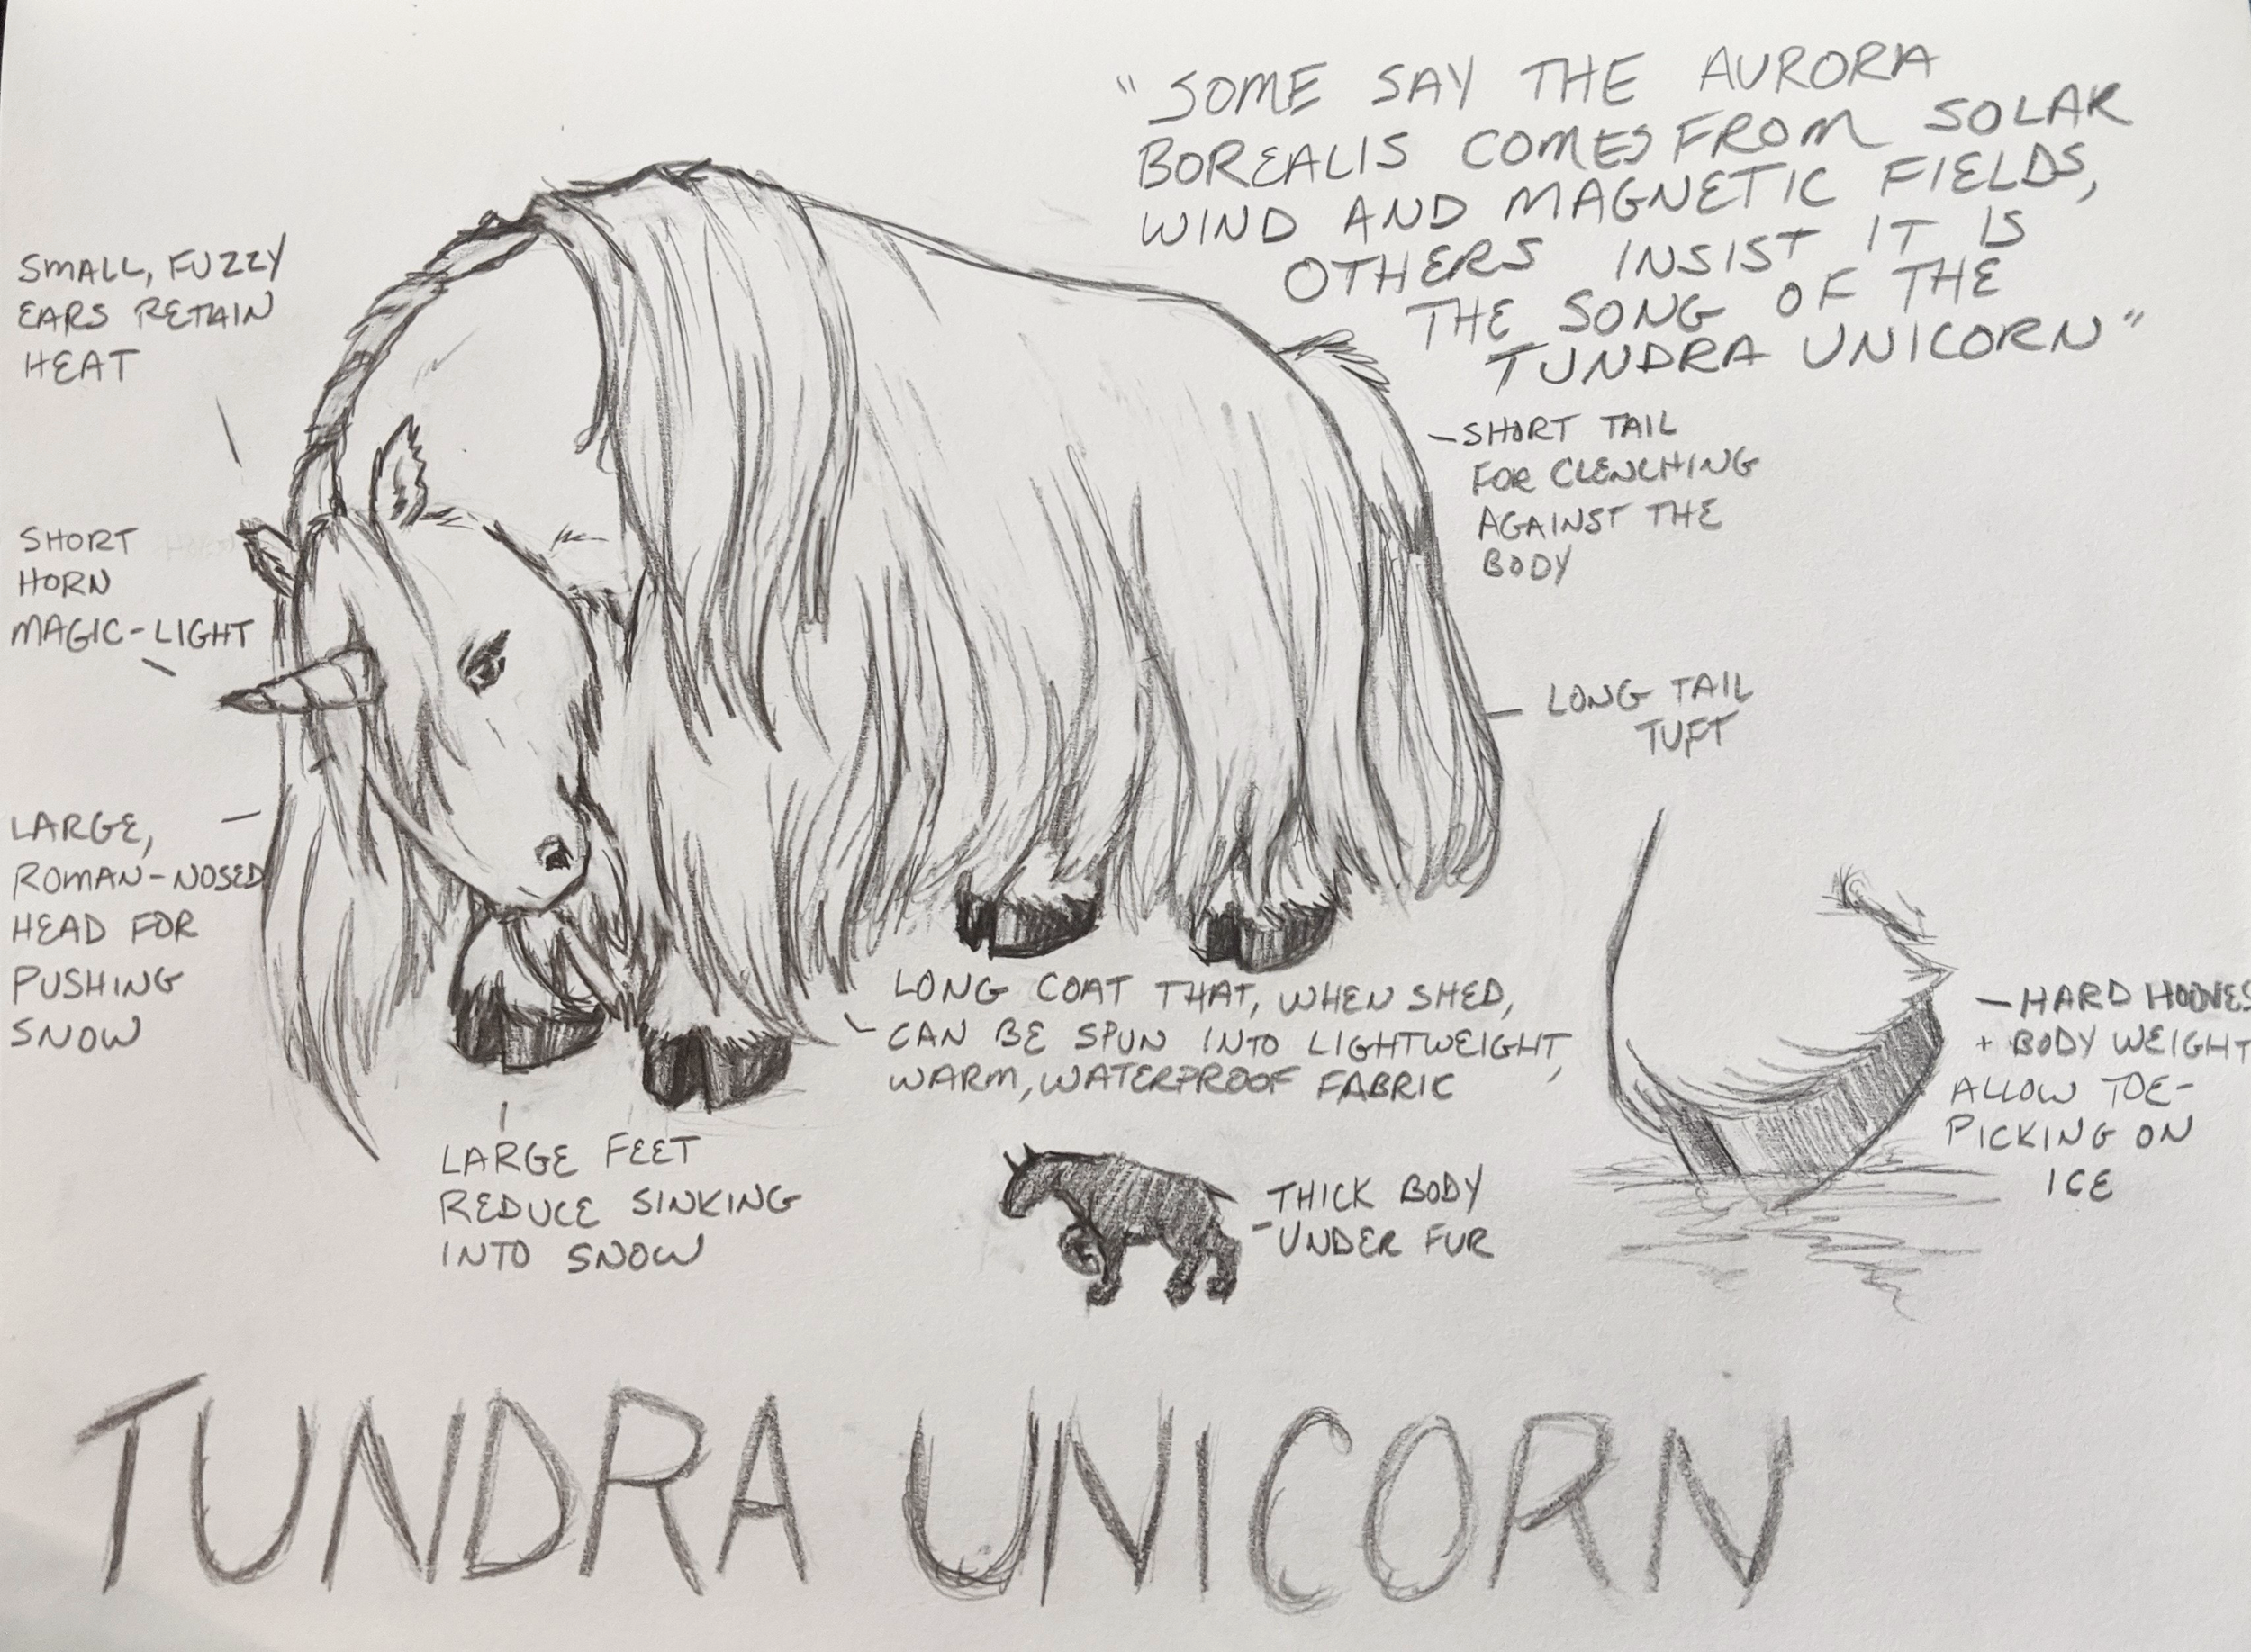 "SOME SAY THE AURORA
BOREALIS COMES FROM SOLAR
WIND AND MAGNETIC FIELDS,
OTHERS INSIST IT IS
THE SONG OF THE
TUNDRA UNICORN"
SMALL, FUZZY
EARS RETAIN
HEAT
SHORT
HORN
MAGIC-LIGHT
LARGE,
ROMAN-NOSED
HEAD FOR
PUSHING
SNOW
-SHORT TAIL
FOR CLENCHING
AGAINST THE
BODY
LONG TAIL
TUFT
LONG COAT THAT, WHEN SHED,
CAN BE SPUN INTO LIGHTWEIGHT,
WARM, WATERPROOF FABRIC
LARGE FEET
REDUCE SINKING
INTO SNOW
THICK BODY
UNDER FUR
-HARD HOOVES
+ BODY WEIGHT
ALLOW TOE-
PICKING ON
ICE
TUNDRA UNICORN